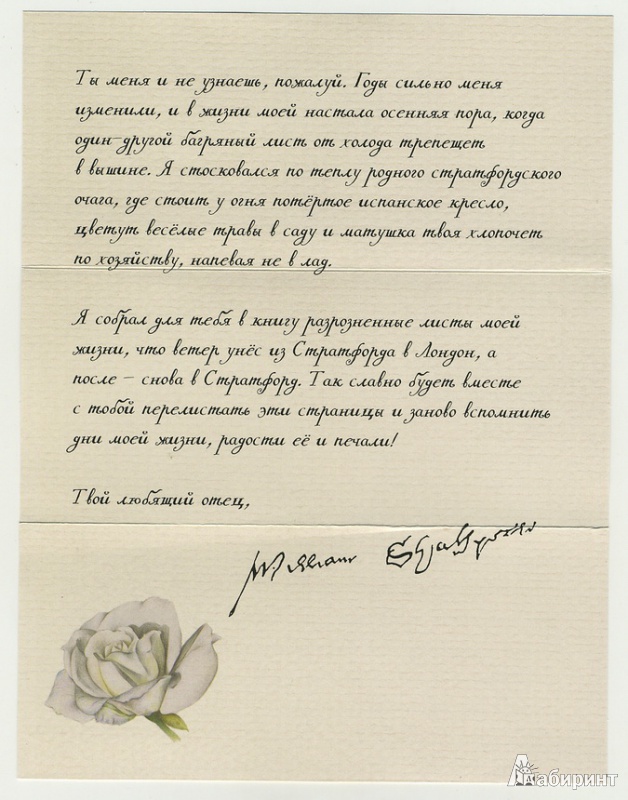 Ты меня и не узнаешь, пожалуй. Годы сильно меня
изменили, и в жизни моей настала осенняя пора, когда
один-другой багряный лист от холода трепещет
в вышине. Я стосковался по теплу родного стратфордского
очага, где стоит у огня потёртое испанское кресло,
цветут весёлые травы в саду и матушка твоя хлопочет
по хозяйству, напевая не в лад.
Я собрал для тебя в книгу разрозненные листы моей
жизни, что ветер унёс из Стратфорда в Лондон, а
после – снова в Стратфорд. Так славно будет вместе
с тобой перелистать эти страницы и заново вспомнить
дни моей жизни, радости её и печали!
Твой любящий отец,
William
Лабиринт